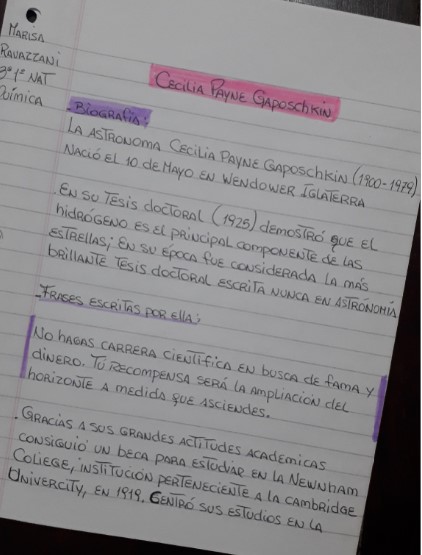 Marisa
Ravazzani
3° 1° NAT
Química
Cecilia Payne Gaposchkin
Biografía:
La astronoma Cecilia Payne Gaposchkin (1900-1979)
nació el 10 de Mayo en Wendower Iglaterra
.En su tesis doctoral (1925) demostró que el
hidrógeno es el principal componente de las
estrellas; en su época fue considerada la más
brillante tesis doctoral escrita nunca en astrónomia
.Frases escritas por ella:
No hagas carrera científica en busca de fama y
dinero. Tu recompensa será la ampliación del
horizonte a medida que asciendes.
.Gracias a sus grandes actitudes academicas
consiguió un beca para estudiar en la Newnham
College, institución perteneciente a la Cambridge
Univercity, en 1919. Centró sus estudios en la